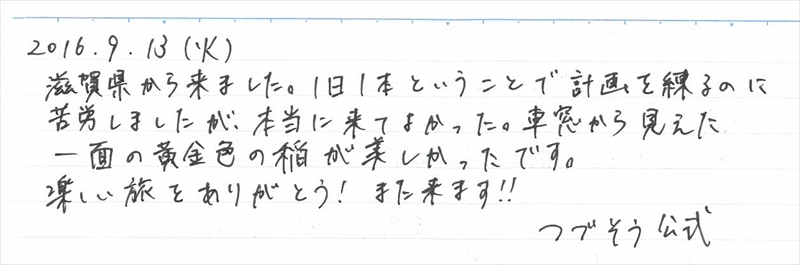 2016.9.13(火)
滋賀県から来ました。1日1本ということで計画を練るのに
苦労しましたが、本当に来てよかった。車窓から見えた
一面の黄金色の稲が美しかったです。
楽しい旅をありがとう！また来ます!!
つづそう公式